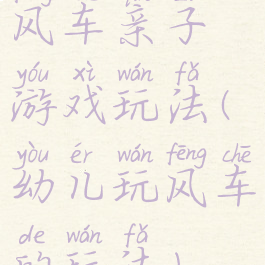 风车亲子
yóu xì wán fǎ
游戏玩法(
yòu ér wán fēng chē
幼儿玩风车
de wán fǎ
的玩法)